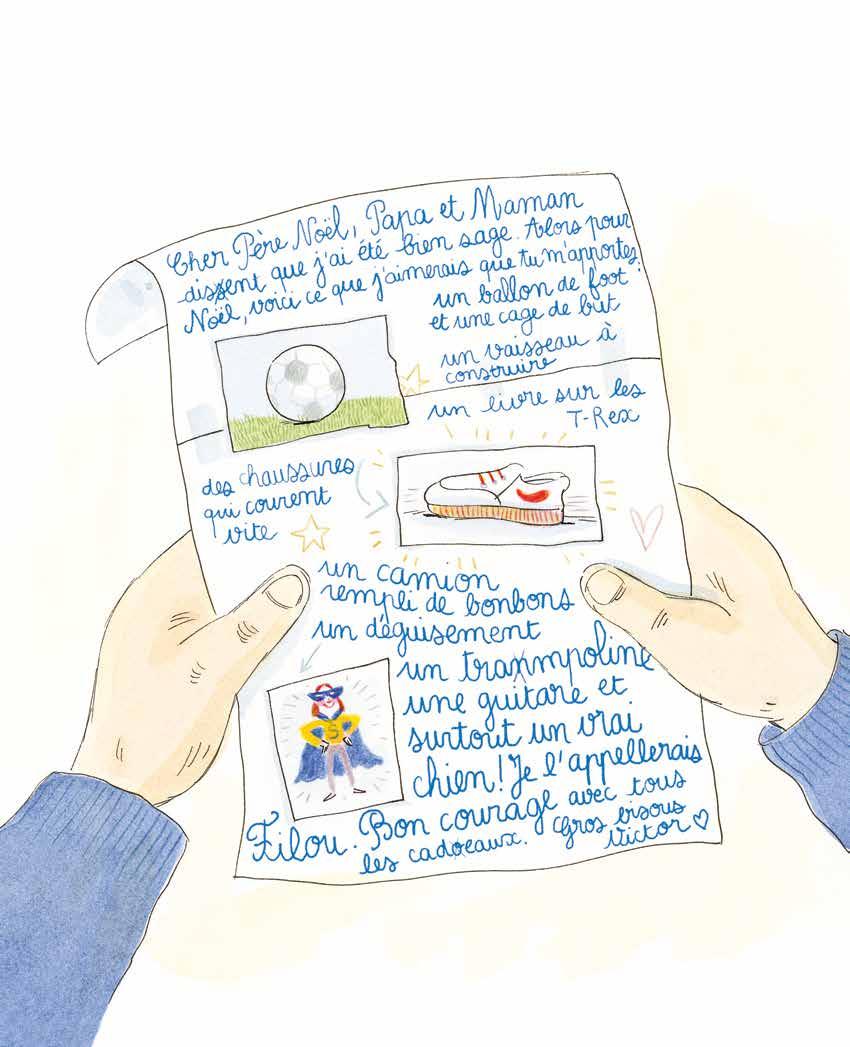 Cher Père Noël, Papa et Maman
disent que j'ai été bien sage. Alors pour
Noël, voici ce que j'aimerais que tu m'apportes :
un ballon de foot
et une cage de but
un vaisseau à
construire
un livre sur les
T-Rex
des chaussures
qui courent
vite
un camion
rempli de bonbons
un déguisement
S
un trampoline
une guitare et
surtout un vrai
chien ! Je l'appellerais
Filou. Bon courage avec tous
les cadeaux. Gros bisous
Victor